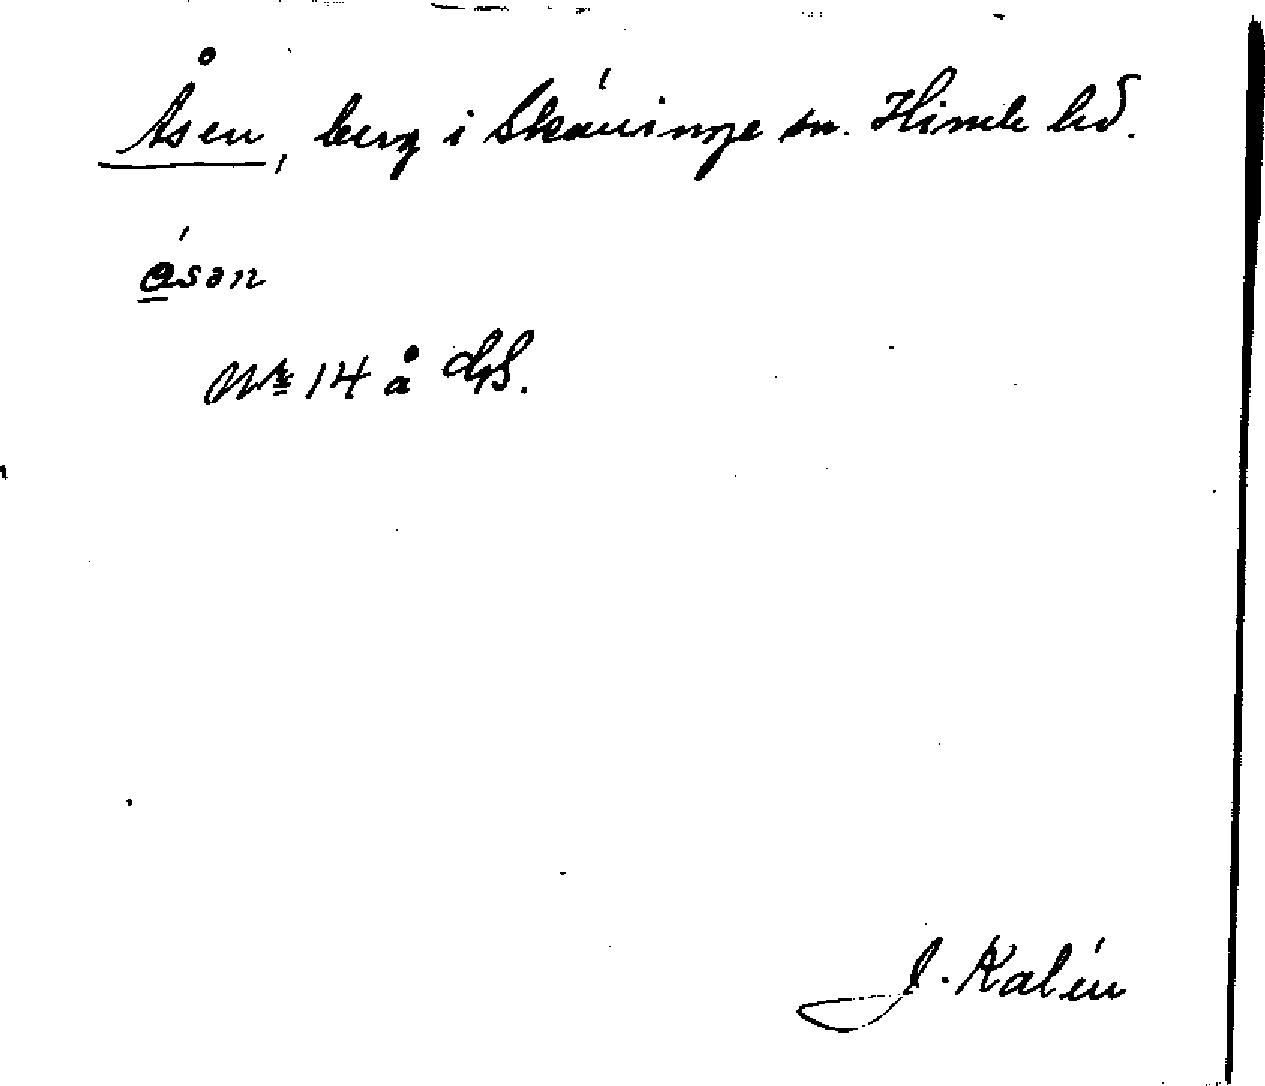 Åsen, berg i Skäringe sn. Himle hd.
åsan
Nr 14 å GS.
J. Kalén